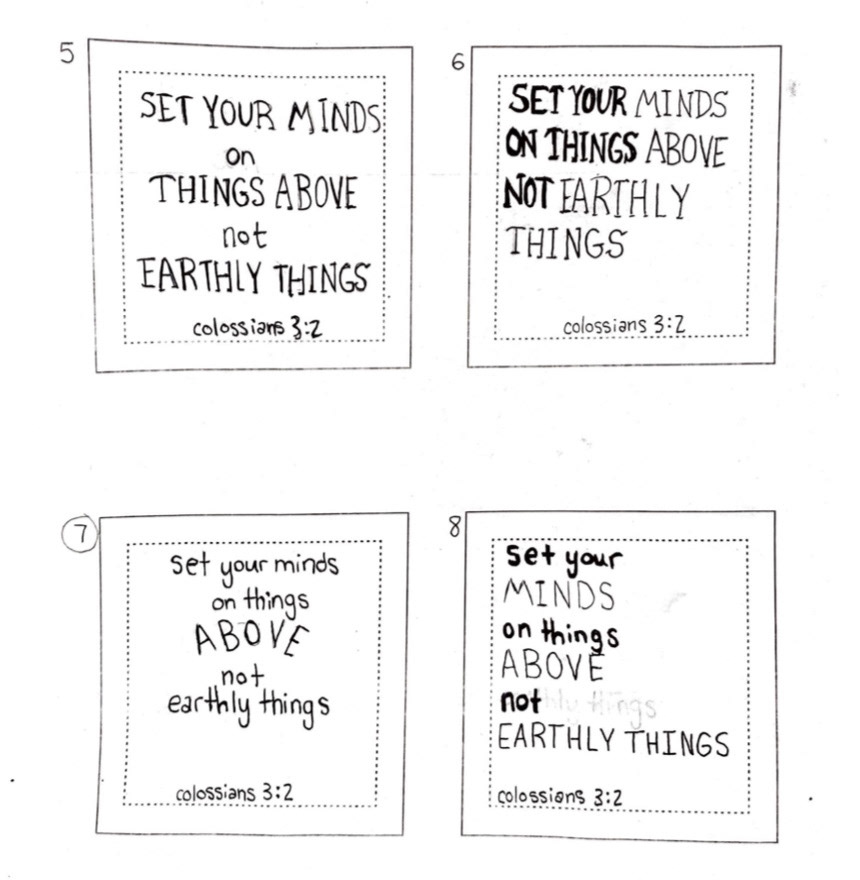 5
SET YOUR MINDS
on
THINGS ABOVE
not
EARTHLY THINGS
colossians 3:2
6
SET YOUR MINDS
ON THINGS ABOVE
NOT EARTHLY
THINGS
colossians 3:2
7
set your minds
on things
ABOVE
not
earthly things
colossians 3:2
8
set your
MINDS
on things
ABOVE
not
EARTHLY THINGS
colossians 3:2